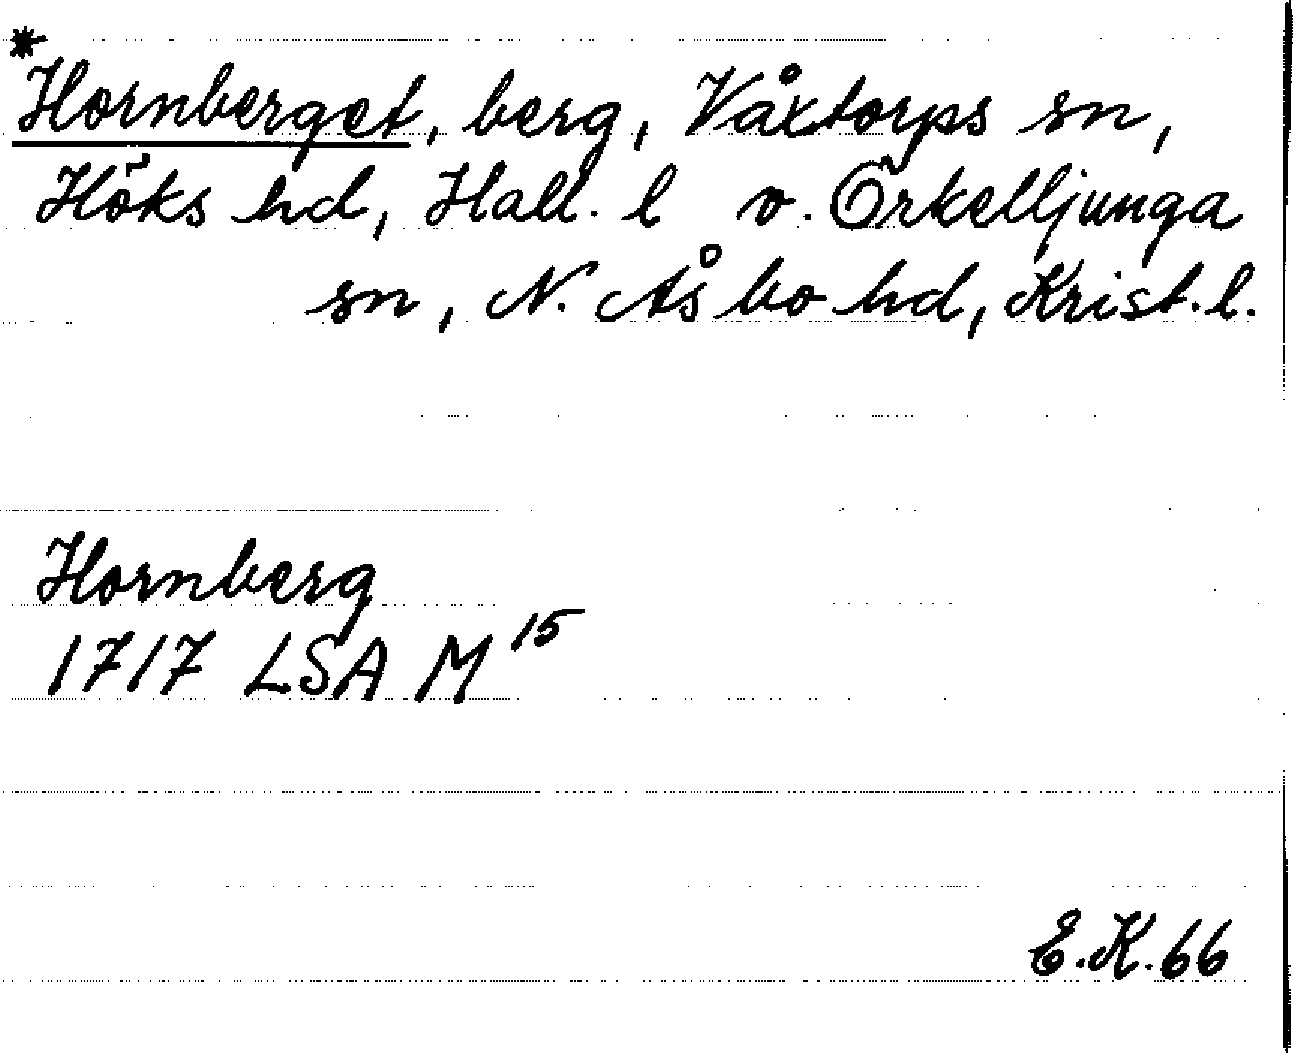 *Hornberget, berg, Våxtorps sn,
Höks hd, Hall. l v. Örkelljunga
sn, N. Åsbo hd, Krist. l.
Hornberg
1717 LSA M 15
E.K. 66